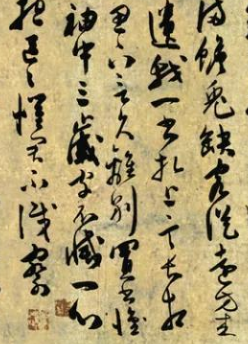 滿蟾兔缺客從遠方来
遺我一書札上言長相
思下言久離別置書懷
袖中三歲字不滅一心
抱區區懼君不識察